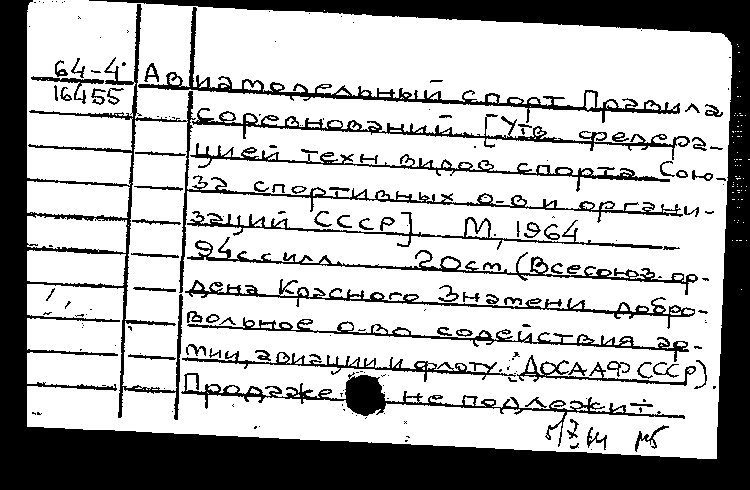 64-4
16455
Авиамодельный спорт Правила
соревнований. [Утв. федера-
цией техн. видов спорта Сою-
за спортивных о-в и органи-
заций СССР]. М., 1964.
94с. с илл. 20 см. (Всесоюз. ор-
дена Красного Знамени добро-
вольное о-во содействия ар-
мии, авиации и флоту. ДОСААФ СССР).
Продаже не подлежит.